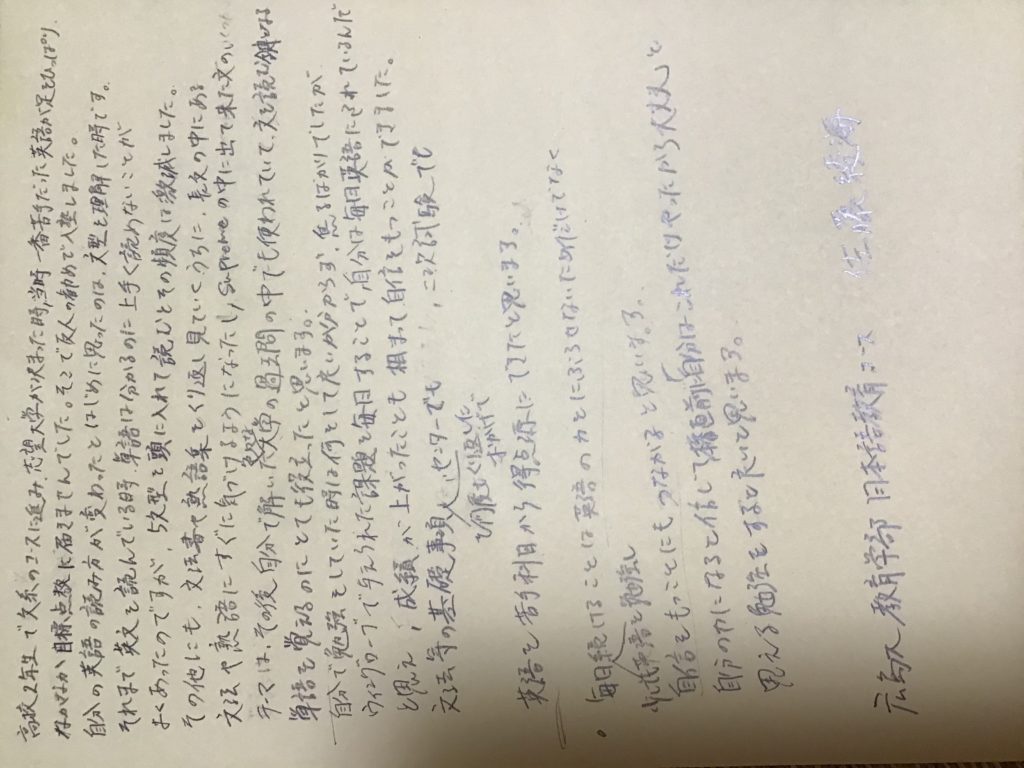 高校2年生で文系のコースに進み、志望大学が決まった時、当時一番苦手だった英語が足をひっぱり、
なかなか目標点数に届きませんでした。そこで友人の勧めで入塾しました。
自分の英語の読み方が変わったとはじめに思ったのは、文型を理解した時です。
それまで英文を読んでいる時、単語は分かるのに上手く読めないことが
よくあったのですが、5文型を頭に入れて読むとその頻度は激減しました。
その他にも、文法書や熟語集をくり返し見ていくうちに、長文の中にある
文法や熟語にすぐに気づけるようになったし、Supremeの中に出て来た文のいくつ
テーマは、その後自分で解いた大学の過去問の中でも使われていて、文を読む鍵となる
単語を覚えるのにとても役立ったと思います。
自分で勉強をしていた時は何をして良いか分からず、焦るばかりでしたが
ウィングローブで与えられた課題を毎日することで、自分は毎日英語にされているんだ
と思え、成績が上がったことも相まって自信をもつことができました。
文法等の基礎事項、センターでも、二次試験でも
を何度もくり返した
おかげで
英語を苦手科目から得点源にできたと思います。
• 毎日続けることは英語の力をにぶらせないためだけでなく
少しでも英語を勉強し
自信をもつことにもつながると思います。
自分の力になると信じて本番直前に「自分はこれだけやったから大丈夫」と
思える勉強をすると良いと思います。
広島大 教育学部 日本語教育コース 佐藤綾海